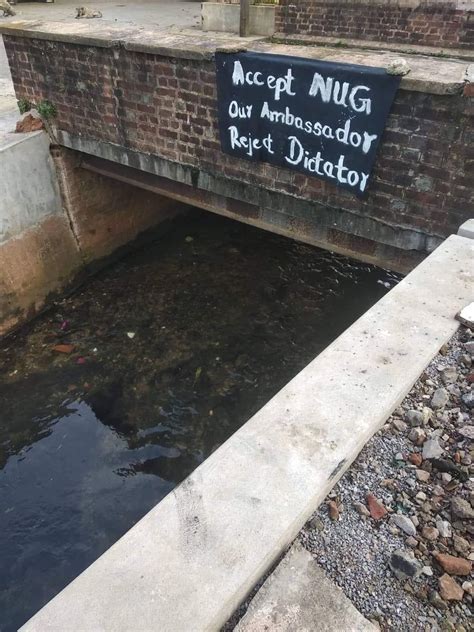 Accept NUG
Our Ambassador
Reject Dictator